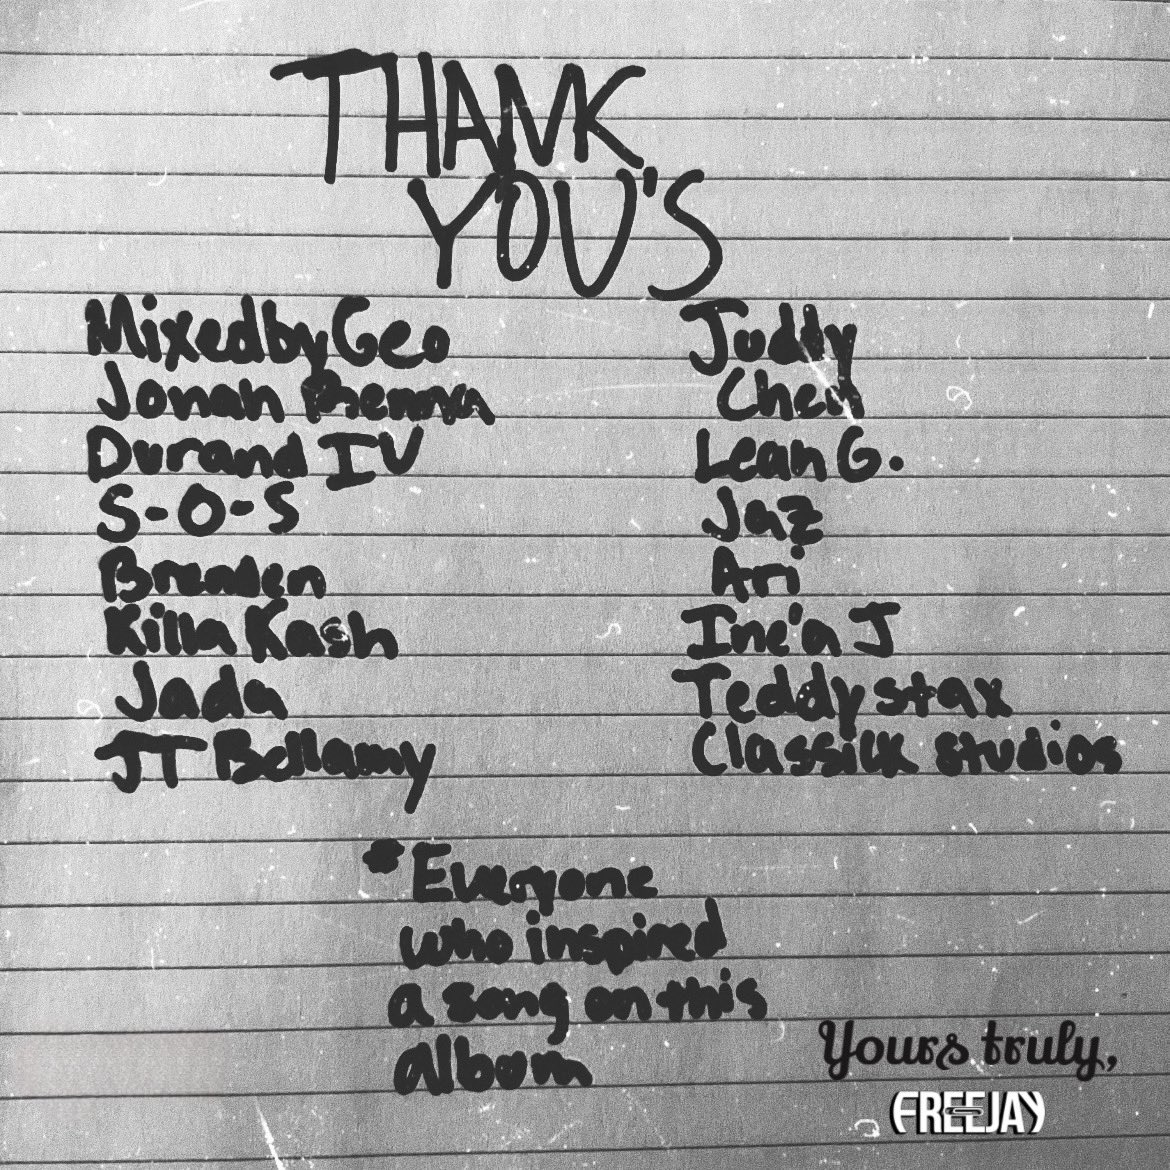 THANK
YOU'S
MixedbyGeo
Jonah
Durand IV
S-O-S
Braden
Killa Kash
Jada
JT Bellamy
Juddy
Chek
Lean G.
Jaz
Ari
Ine'a J
Teddy stax
Classikk studios
*Everyone
who inspired
a song on this
album
Yours truly,
FREEJAY